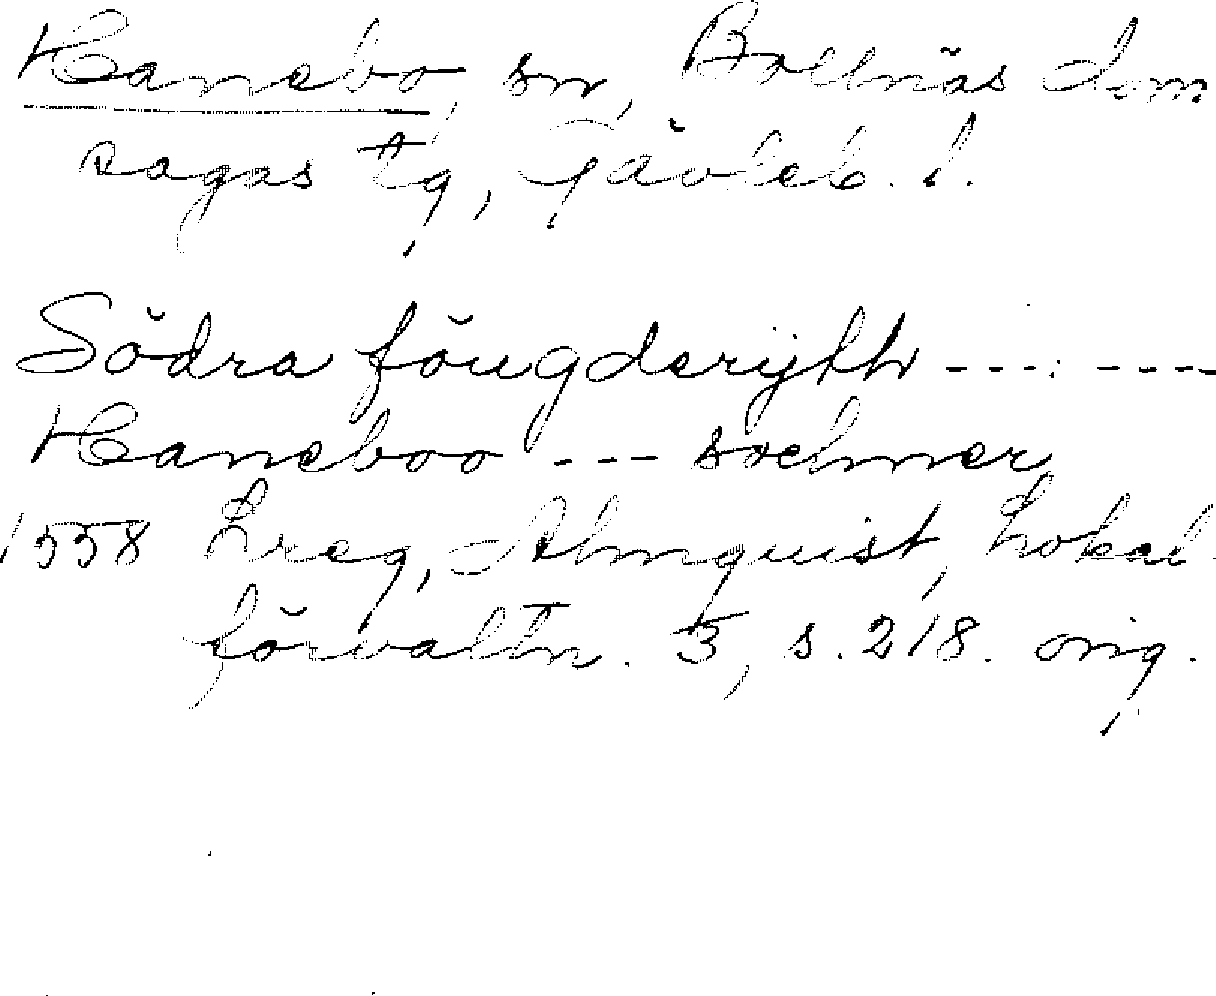 Hanebo, sn, Bollnäs dom
sagas tg, Gävleb. l.
Södra föugderÿth --- ---
Haneboo --- sochner
1558 Lreg, Almquist, Lokal
förvaltn. 3, s. 218. orig.